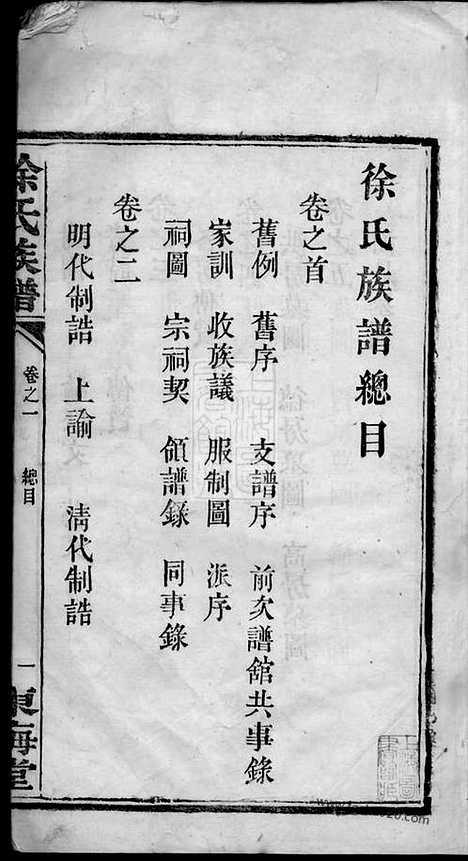 徐氏族譜總目
卷之首
舊例 舊序 支譜序 前次譜舘共事錄
家訓 收族議 服制圖 派序
祠圖 宗祠契 領譜錄 同事錄
卷之二
明代制誥 上諭 清代制誥
徐氏族譜 卷之一 總目 一 東海堂